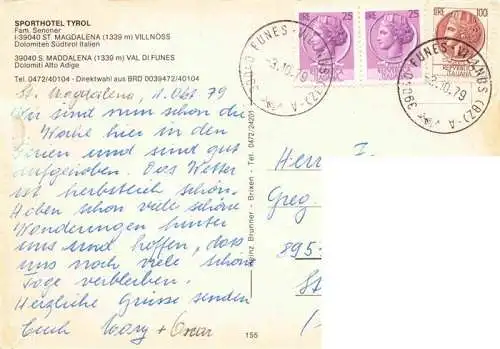 SPORTHOTEL TYROL
Fam. Senoner
I-39040 ST. MAGDALENA (1339 m) VILLNÖSS
Dolomiten Südtirol Italien
39040 S. MADDALENA (1339 m) VAL DI FUNES
Dolomiti Alto Adige
Tel. 0472/40104 - Direktwahl aus BRD 0039472/40104
St. Magdalena, 1. Okt. 79
Wir sind nun schon die
Woche hier in den
Ferien und sind gut
aufgehoben. Das Wetter
ist herbstlich schön.
Haben schon viele schöne
Wanderungen hinter
uns und hoffen, dass
uns noch viele schöne
Tage verbleiben.
Herzliche Grüsse senden
Euch Mary + Oscar
Heinz Brunner - Brixen - Tel. 0472/24201
155
LIRE 25
LIRE 25
LIRE 100
REPUBBLICA
ITALIANA
39040 FUNES - VILLNÖSS (BZ) - A
-3.10.79
39040 FUNES - VILLNÖSS (BZ) - A
-3.10.79
Herrn
Greg.
895